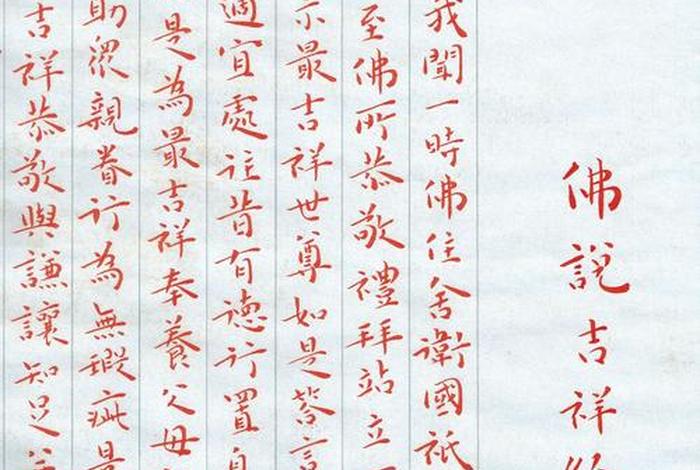 佛說吉祥
我聞一時佛住舍衛國祇
至佛所恭敬禮拜站立
示最吉祥世尊如是答言
適宜處住昔有德行置身
是為最吉祥奉養父母
助眾親眷行為無瑕疵是
吉祥恭敬與謙讓知足